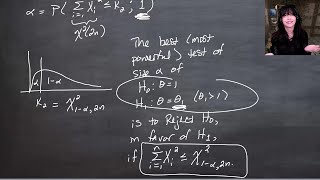 α = P( Σ_{i=1}^{n} X_i² ≤ K₂ ; 1 )
χ²(2n)
α 1-α
K₂ = χ²_{1-α, 2n}
The best (most
powerful) test of
size α of
H₀ : θ = 1
H₁ : θ = θ₁ (θ₁ > 1)
is to Reject H₀,
in favor of H₁,
if Σ_{i=1}^{n} X_i² ≤ χ²_{1-α, 2n}.